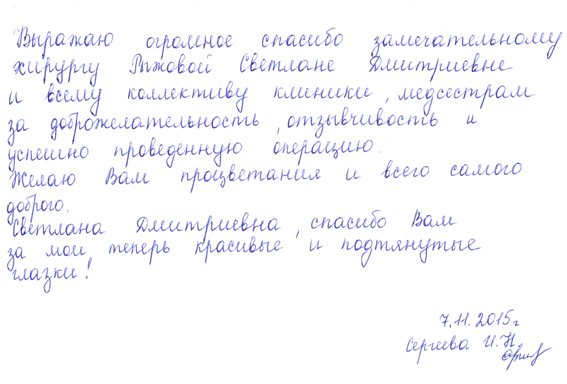 Выражаю огромное спасибо замечательному
хирургу Рыжовой Светлане Дмитриевне
и всему коллективу клиники, медсестрам
за доброжелательность, отзывчивость и
успешно проведенную операцию.
Желаю Вам процветания и всего самого
доброго.
Светлана Дмитриевна, спасибо Вам
за мои, теперь красивые и подтянутые
глазки!
7.11.2015г
Сергеева И.Н.